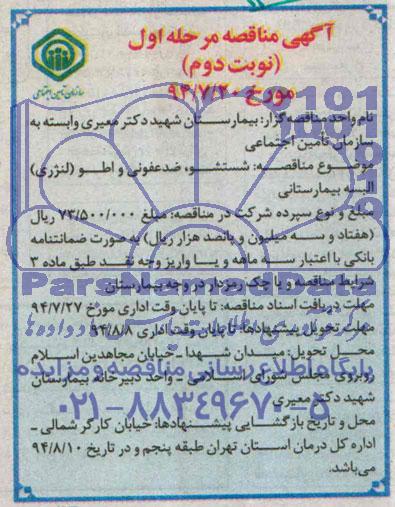 آگهی مناقصه مرحله اول
(نوبت دوم)
مورخ ۹۴/۷/۲۰
سازمان تأمین اجتماعی
نام واحد مناقصه گزار: بیمارستان شهید دکتر معیری وابسته به
سازمان تأمین اجتماعی
موضوع مناقصه: شستشو، ضدعفونی و اطو (لنژری)
البسه بیمارستانی
مبلغ و نوع سپرده شرکت در مناقصه: مبلغ ۷۳/۵۰۰/۰۰۰ ریال
(هفتاد و سه میلیون و پانصد هزار ریال) به صورت ضمانتنامه
بانکی با اعتبار سه ماهه و یا واریز وجه نقد طبق ماده ۳
شرایط مناقصه و یا چک رمزدار در وجه بیمارستان
ParsNamadData
مهلت دریافت اسناد مناقصه: تا پایان وقت اداری مورخ ۹۴/۷/۲۷
مهلت تحویل پیشنهادها: تا پایان وقت اداری ۹۴/۸/۸
محل تحویل: میدان شهدا - خیابان مجاهدین اسلام
پایگاه اطلاع رسانی مناقصه و مزایده
روبروی مجلس شورای اسلامی - واحد دبیرخانه بیمارستان
شهید دکتر معیری
۰۲۱-۸۸۳۴۹۶۷۰-۵
محل و تاریخ بازگشایی پیشنهادها: خیابان کارگر شمالی -
اداره کل درمان استان تهران طبقه پنجم و در تاریخ ۹۴/۸/۱۰
می‌باشد.